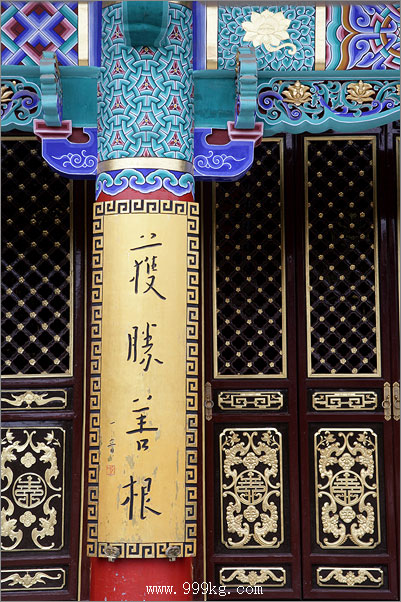 獲勝善根
www.999kg.com